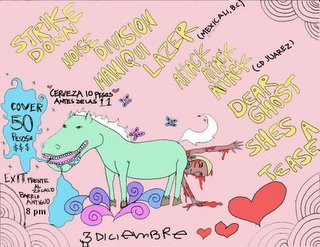 STRIKE
DOWN
NOISE DIVISION
MANIQUI
LAZER
(MEXICALI, BC)
ATTACK
ATTACK
ATTACK
(CD JUAREZ)
DEAR
GHOST
SHES
A
TEASE
CERVEZA 10 PESOS
ANTES DE LAS 11
COVER
50
PESOS
$$$
EXIT FRENTE
AL
ZOCALO
BARRIO
ANTIGUO
8 pm
3 DICIEMBRE